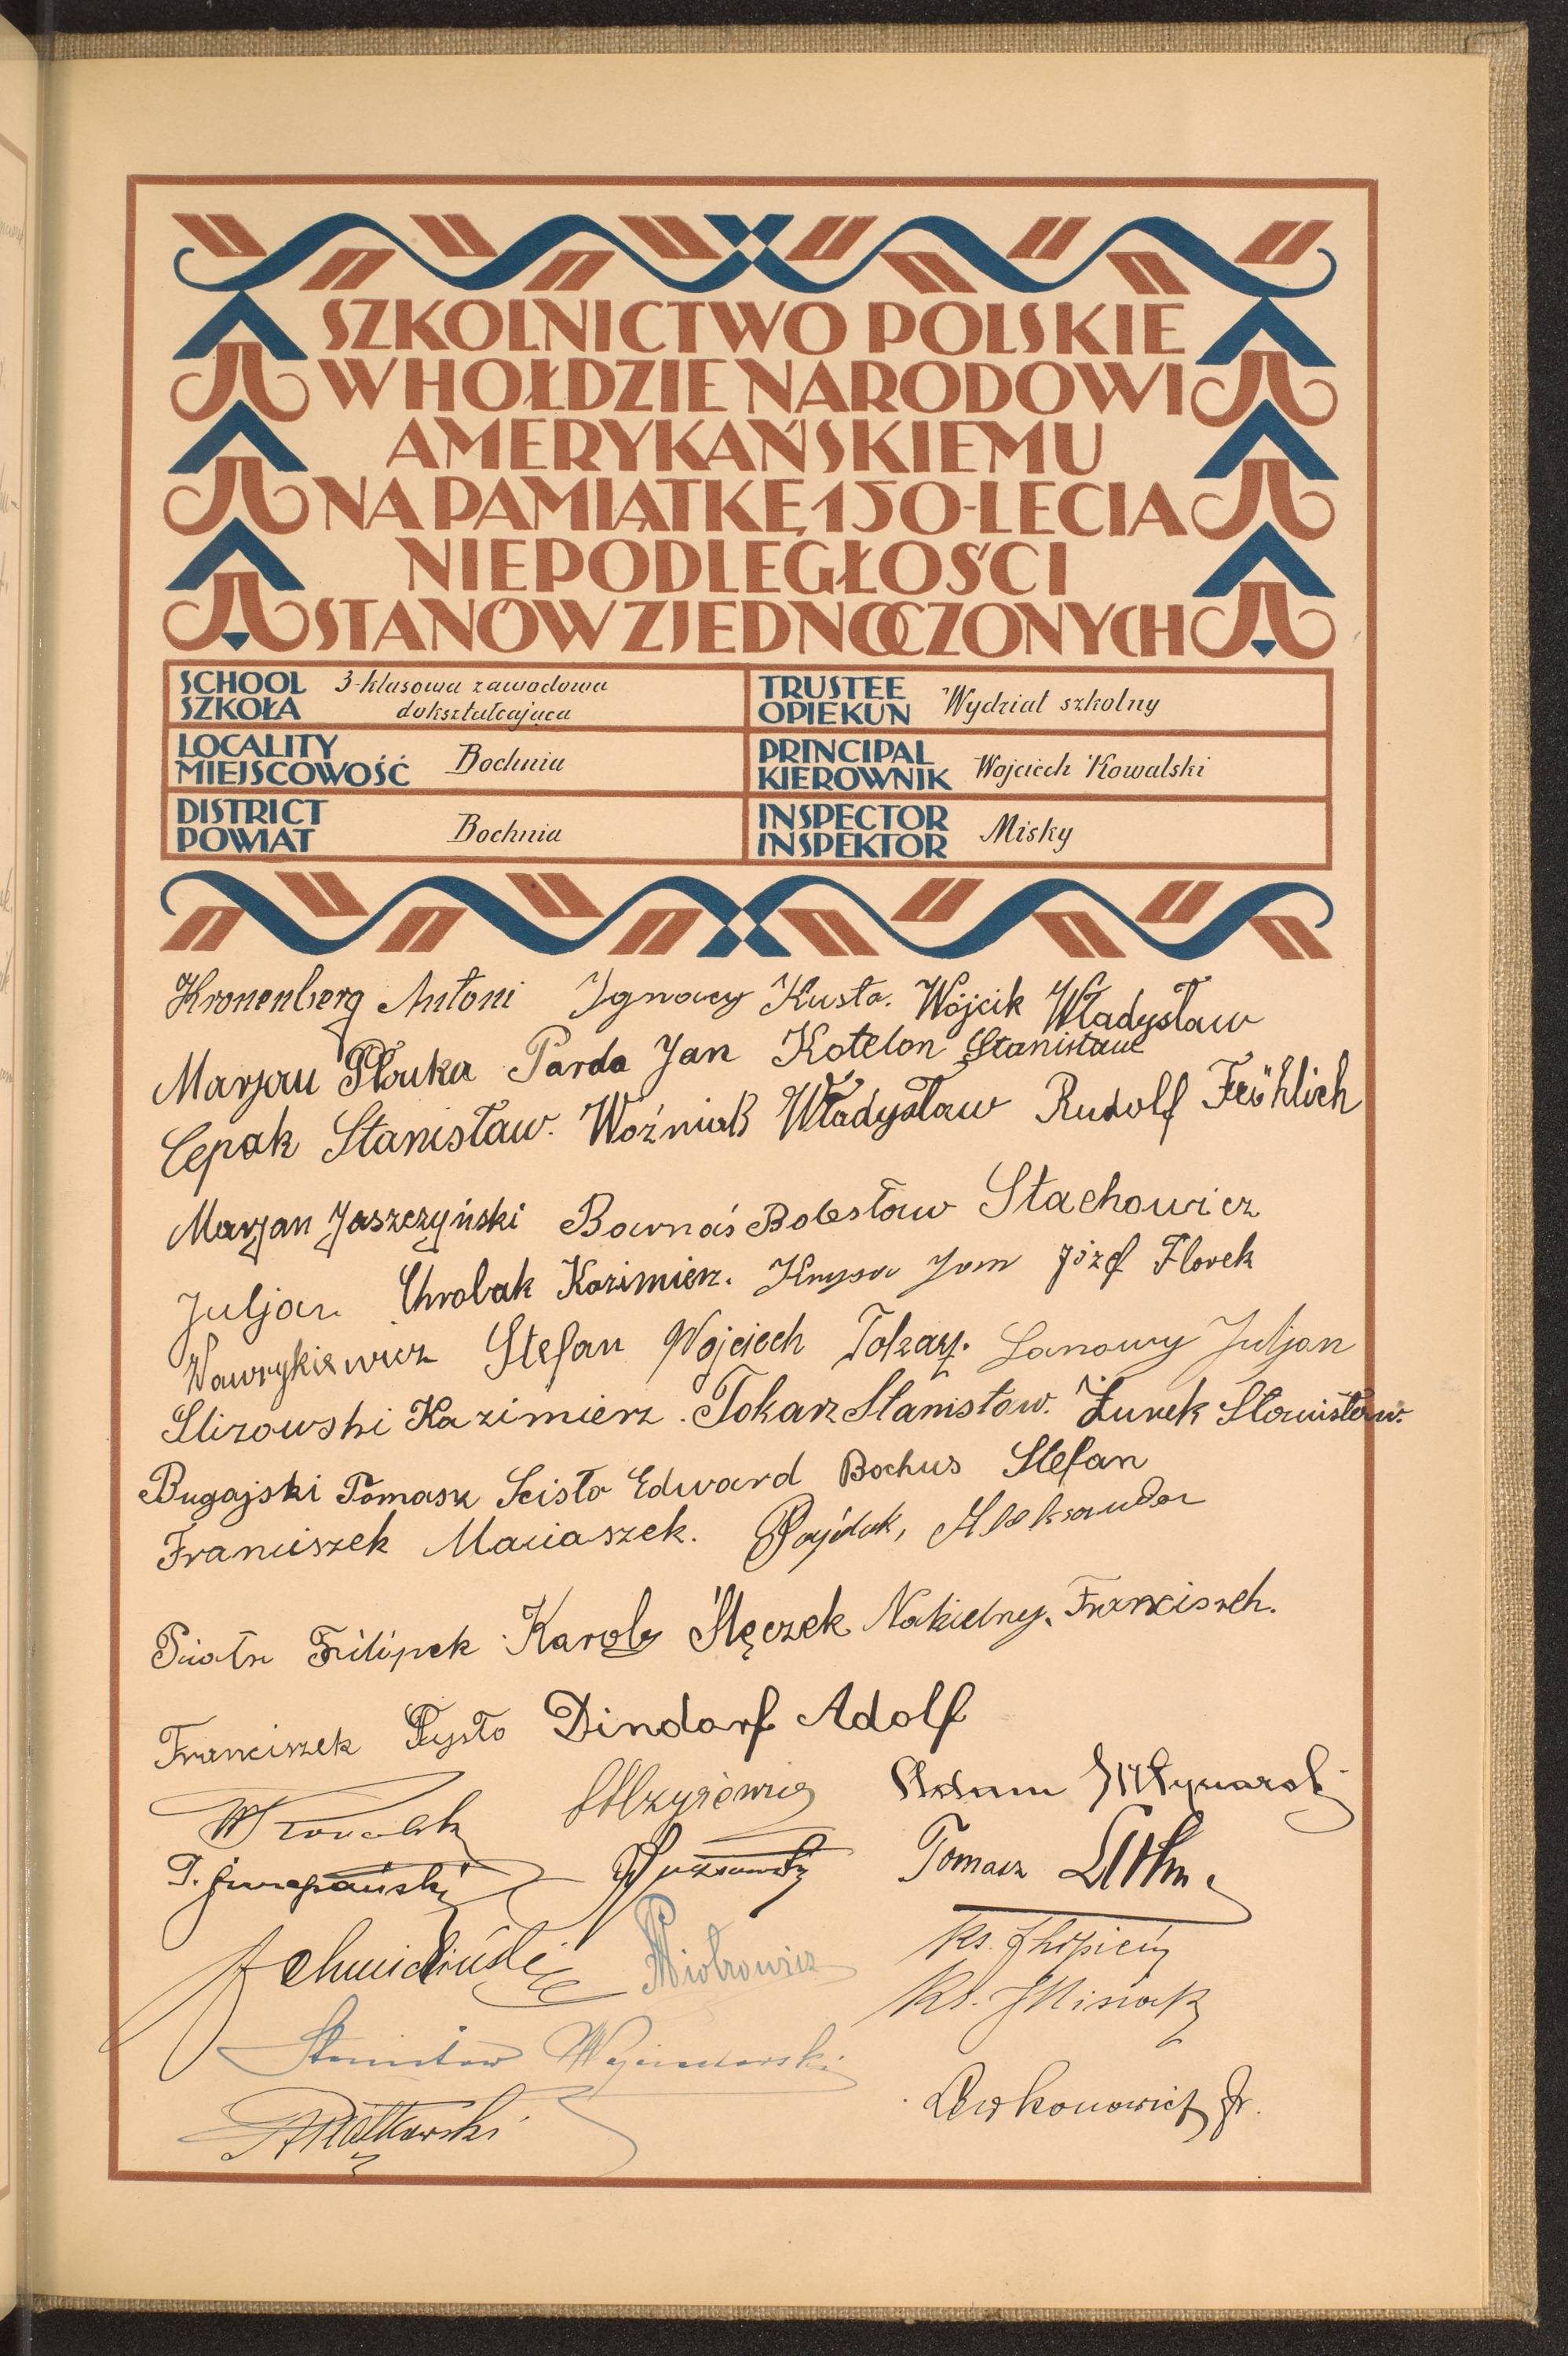 SZKOLNICTWO POLSKIE
W HOŁDZIE NARODOWI
AMERYKAŃSKIEMU
NA PAMIĄTKĘ 150-LECIA
NIEPODLEGŁOŚCI
STANÓW ZJEDNOCZONYCH
SCHOOL
SZKOŁA
3-klasowa zawodowa
dokształcająca
TRUSTEE
OPIEKUN
Wydział szkolny
LOCALITY
MIEJSCOWOŚĆ
Bochnia
PRINCIPAL
KIEROWNIK
Wojciech Kowalski
DISTRICT
POWIAT
Bochnia
INSPECTOR
INSPEKTOR
Misky
Kronenberg Antoni Ignacy Kusta. Wójcik Władysław
Marjan Płonka Parda Jan Kotelon Stanisław
Cepak Stanisław. Woźniak Władysław Rudolf Fröhlich
Marjan Jaszczyński Barnaś Bolesław Stachowicz
Juljan Chrobak Kazimierz. Knysa Jan Józef Florek
Wawrykiewicz Stefan Wojciech Łanowy Juljan
Slizowski Kazimierz. Tokarz Stanisław. Żurek Stanisław.
Bugajski Tomasz Scisło Edward Bochus Stefan
Franciszek Maciaszek. Pajdak, Aleksander
Piotr Filipek Karol Ślęczek Nakielny Franciszek.
Franciszek Pysło Dindorf Adolf
WKowalski Adam Młynarski
Tomasz
Piotrowicz Ks.
Stanisław Ks.
APiątkowski